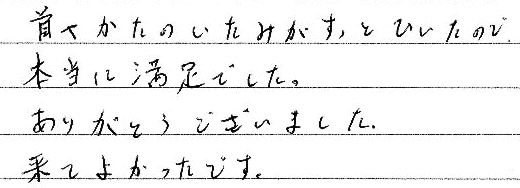 首やかたのいたみがすっとひいたので、
本当に満足でした。
ありがとうございました。
来てよかったです。